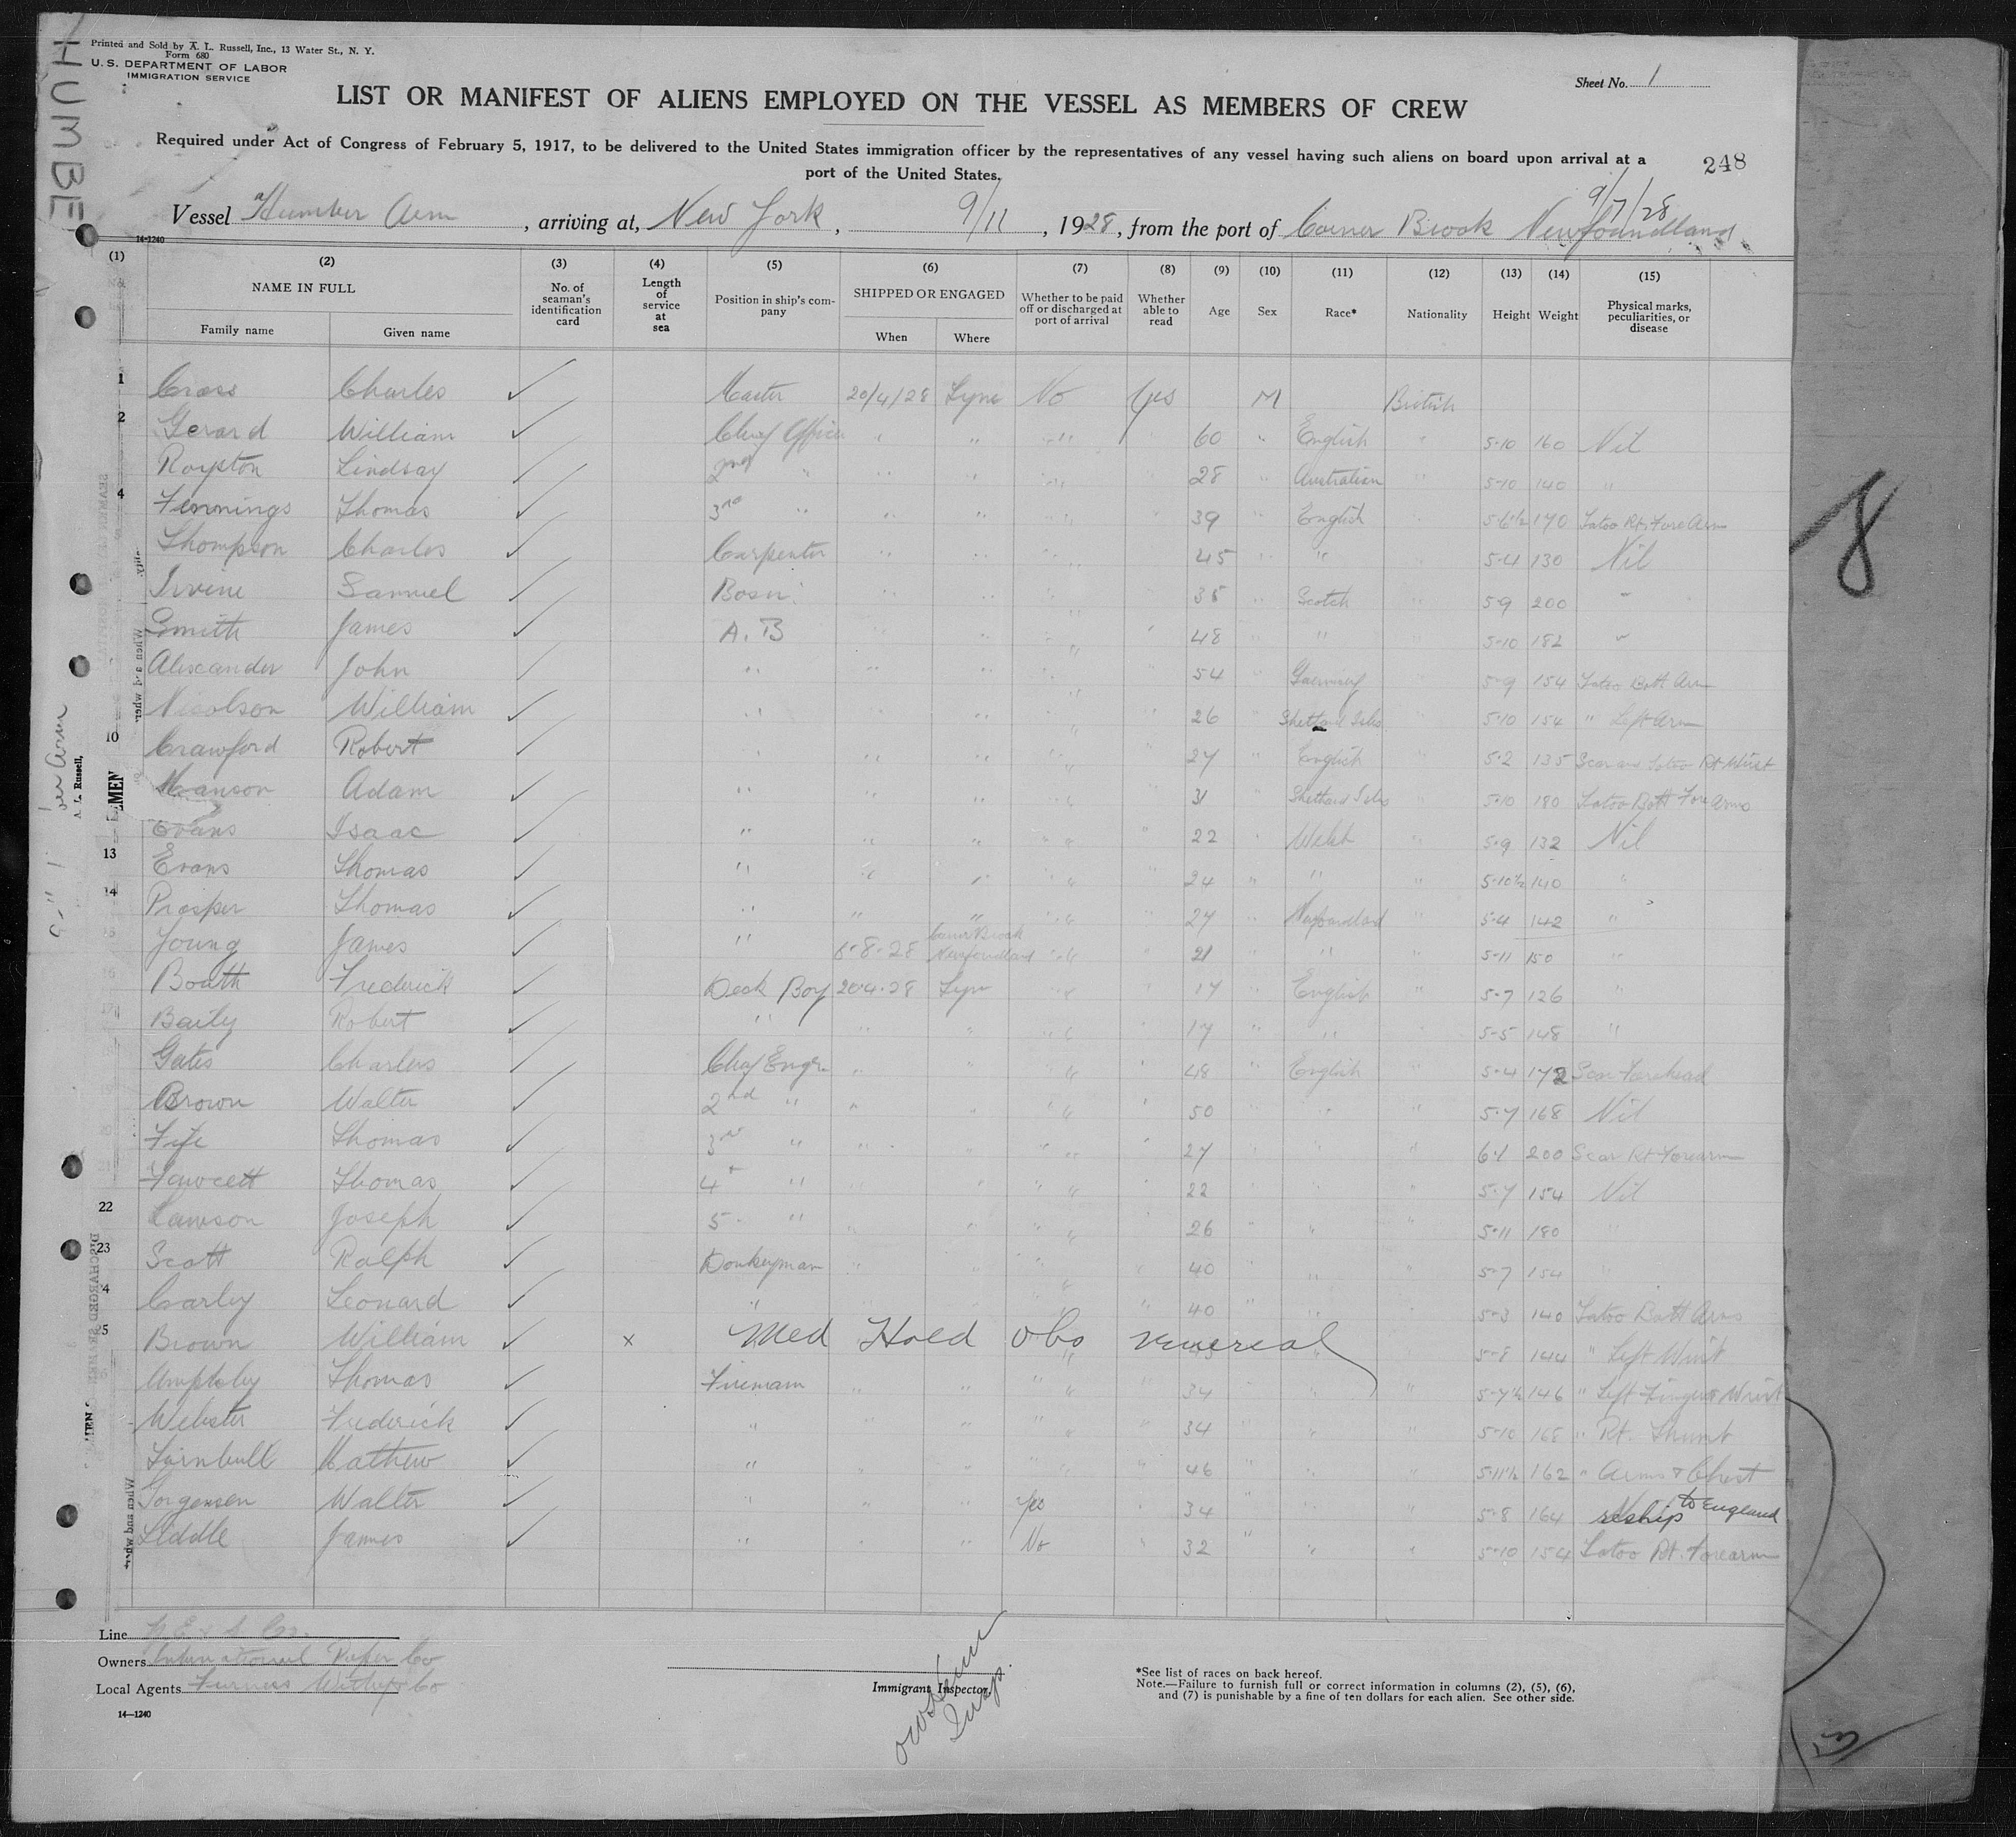 HUMBE
Printed and Sold by A. L. Russell, Inc., 13 Water St., N. Y.
Form 680
U. S. DEPARTMENT OF LABOR
IMMIGRATION SERVICE
Sheet No. 1
LIST OR MANIFEST OF ALIENS EMPLOYED ON THE VESSEL AS MEMBERS OF CREW
Required under Act of Congress of February 5, 1917, to be delivered to the United States immigration officer by the representatives of any vessel having such aliens on board upon arrival at a
port of the United States.
248
9/7/28
Vessel Humber Arm, arriving at, New York, 9/11, 1928, from the port of Corner Brook Newfoundland
14-1240
(1) (2) (3) (4) (5) (6) (7) (8) (9) (10) (11) (12) (13) (14) (15)
NAME IN FULL Family name Given name No. of seaman's identification card Length of service at sea Position in ship's company SHIPPED OR ENGAGED When Where Whether to be paid off or discharged at port of arrival Whether able to read Age Sex Race* Nationality Height Weight Physical marks, peculiarities, or disease
1 Cross Charles ✓ Master 20/4/28 Tyne No Yes M British
2 Gerard William ✓ Chief Officer " " " 60 " English " 5-10 160 Nil
Royston Lindsay ✓ 2nd " " " " 28 " Australian " 5-10 140 "
4 Fennings Thomas ✓ 3rd " " " " 39 " English " 5-6½ 170 Tatoo Rt. Fore Arm
Thompson Charles ✓ Carpenter " " " 45 " " " 5-4 130 Nil
Irvine Samuel ✓ Bosn. " " " 35 " Scotch " 5-9 200 "
Smith James ✓ A. B " " " " 48 " " " 5-10 182 "
Alexander John ✓ " " " " " 54 " Guernsey " 5-9 154 Tatoo Both Arm
Nicolson William ✓ " " " " " 26 " Shetland Isles " 5-10 154 " Left Arm
10 Crawford Robert ✓ " " " " " 27 " English " 5-2 135 Scar and Tatoo Rt Wrist
Manson Adam ✓ " " " " " 31 " Shetland Isles " 5-10 180 Tatoo Both Fore Arms
Evans Isaac ✓ " " " " " 22 " Welsh " 5-9 132 Nil
13 Evans Thomas ✓ " " " " " 24 " " " 5-10½ 140 "
14 Prosper Thomas ✓ " " " " " 27 " Newfoundland " 5-4 142 "
15 Young James ✓ " 6-8-28 Corner Brook Newfoundland " " 21 " " " 5-11 150 "
16 Booth Frederick ✓ Deck Boy 20-4-28 Tyne " " 17 " English " 5-7 126 "
17 Baily Robert ✓ " " " " " 17 " " " 5-5 148 "
Gates Charles ✓ Chief Engr. " " " " 48 " English " 5-4 172 Scar Forehead
Brown Walter ✓ 2nd " " " " " 50 " " " 5-7 168 Nil
Fife Thomas ✓ 3rd " " " " " 27 " " " 6-1 200 Scar Rt Forearm
Fawcett Thomas ✓ 4 " " " " 22 " " 5-7 154 Nil
22 Lawson Joseph ✓ 5 " " " " 26 " " " 5-11 180 "
23 Scott Ralph ✓ Donkeyman " " " " 40 " " " 5-7 154 "
4 Carley Leonard ✓ " " " " " 40 " " " 5-3 140 Tatoo Both Arms
5 Brown William ✓ x Med Hold obs venereal 5-8 144 " Left Wrist
Thomas ✓ Fireman " " " " 34 " " " 5-7½ 146 " Left Finger & Wrist
Webster Frederick ✓ " " " " " 34 " " " 5-10 168 " Rt. Thumb
Turnbull Mathew ✓ " " " " " 46 " " " 5-11½ 162 " Arms & Chest
Jorgensen Walter ✓ " " " Yes " 34 " " " 5-8 164 reship to England
Liddle James ✓ " " " No " 32 " " " 5-10 154 Tatoo Rt. Forearm
Line
Owners International Paper Co
Local Agents Furness Withy & Co
14—1240
Immigrant Inspector.
Insp.
*See list of races on back hereof.
Note.—Failure to furnish full or correct information in columns (2), (5), (6),
and (7) is punishable by a fine of ten dollars for each alien. See other side.
8
A. L. Russell,